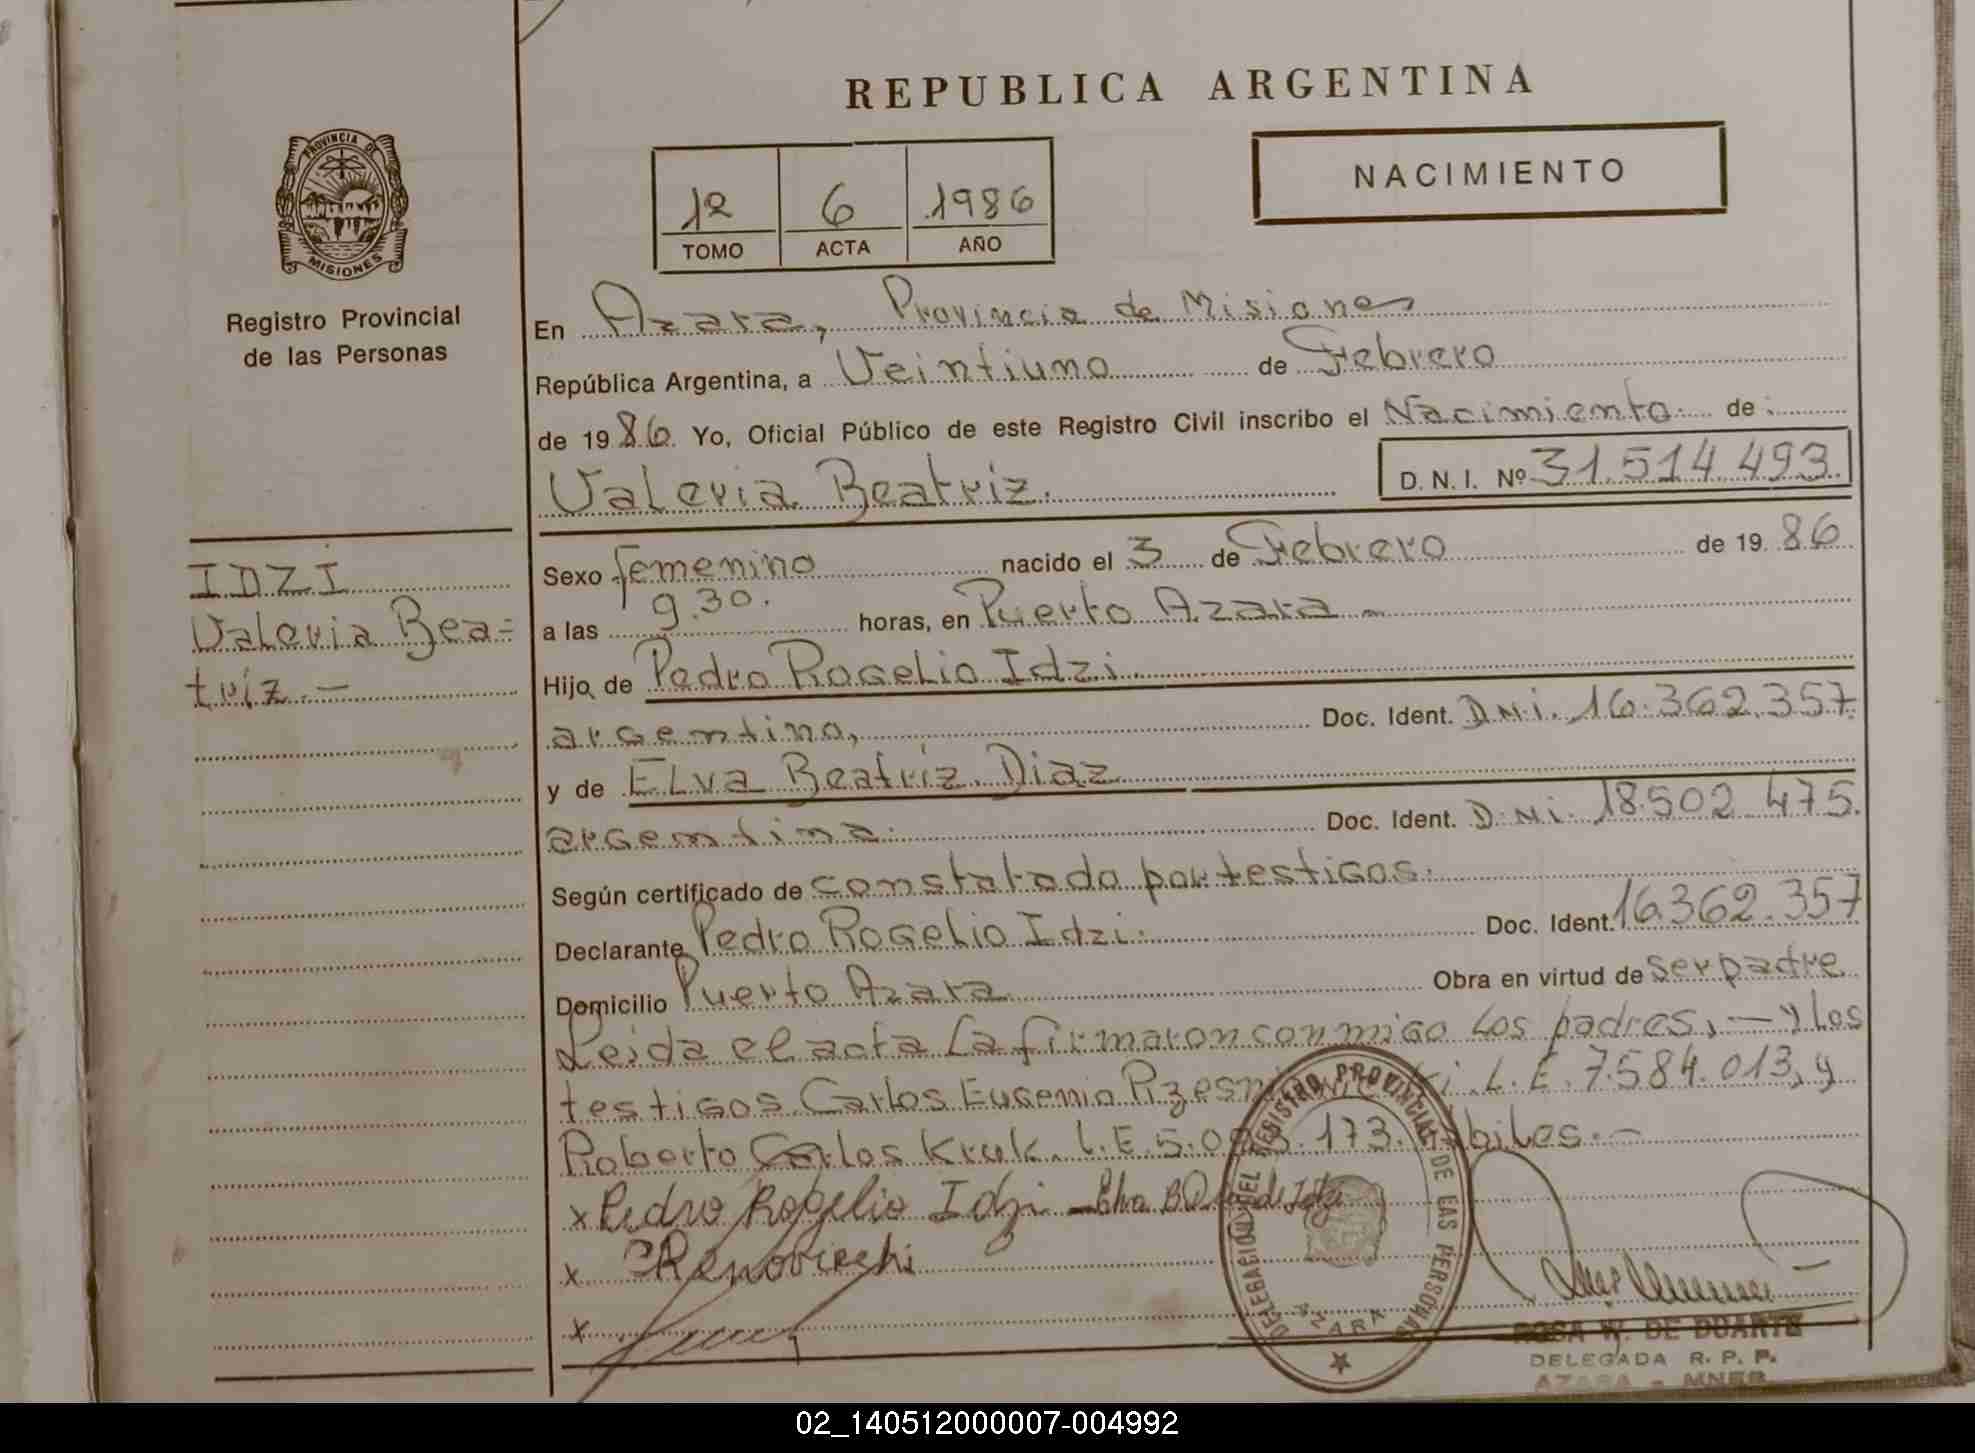 REPUBLICA ARGENTINA
PROVINCIA DE
MISIONES
Registro Provincial
de las Personas
12 6 1986
TOMO ACTA AÑO
NACIMIENTO
En Azara, Provincia de Misiones
República Argentina, a Veintiuno de Febrero
de 1986. Yo, Oficial Público de este Registro Civil inscribo el Nacimiento de
Valeria Beatriz. D. N. I. Nº 31.514.493.
IDZI
Valeria Bea=
triz.-
Sexo femenino nacido el 3 de Febrero de 1986
a las 9.30. horas, en Puerto Azara
Hijo de Pedro Rogelio Idzi
argentino, Doc. Ident. D.N.i. 16.362.357
y de Elva Beatriz Diaz
argentina. Doc. Ident. D.N.i. 18.502.475.
Según certificado de constatado por testigos.
Declarante Pedro Rogelio Idzi. Doc. Ident. 16362.357
Domicilio Puerto Azara Obra en virtud de ser padre
Leida el acta la firmaron conmigo los padres, - y los
testigos Carlos Eugenio L.E. 7.584.013, y
Roberto Carlos Kruk. L.E. 173. -
x Pedro Rogelio Idzi - Elva B. de Idzi
x
x
DELEGACION DEL REGISTRO PROVINCIAL DE LAS PERSONAS
AZARA
ROSA W. DE DUARTE
DELEGADA R. P. P.
AZARA - MNES.
02_140512000007-004992